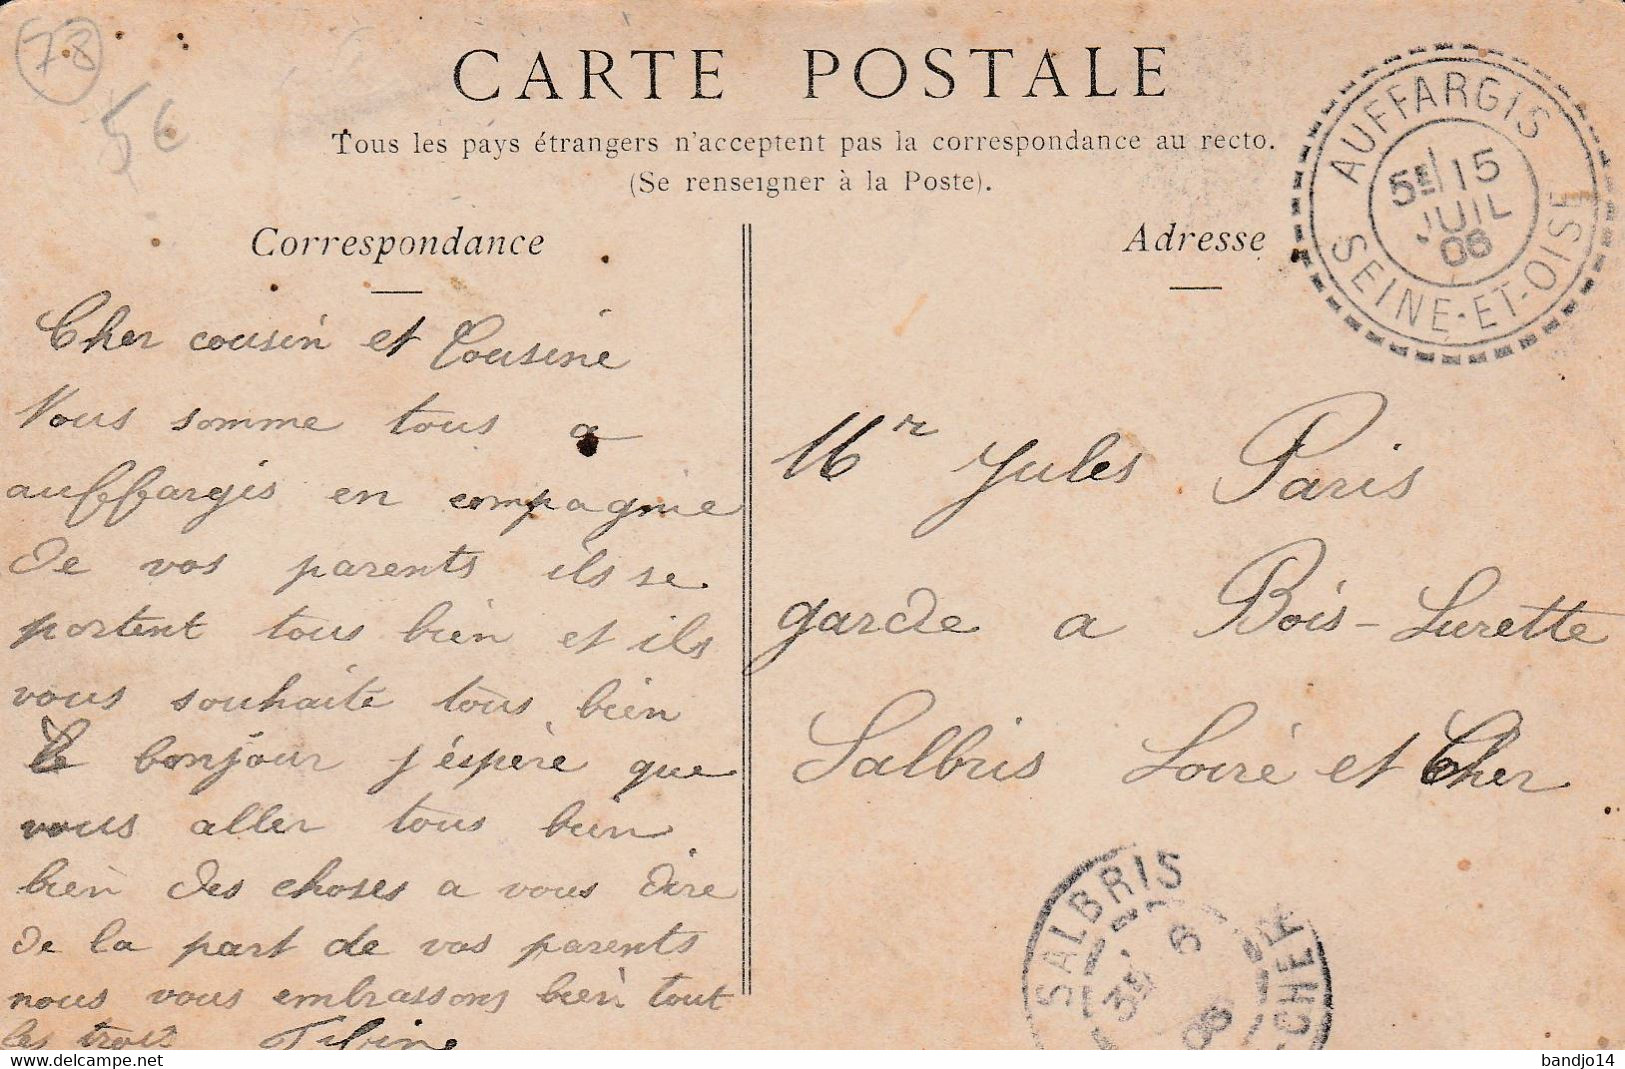 78
5€
CARTE POSTALE
Tous les pays étrangers n'acceptent pas la correspondance au recto.
(Se renseigner à la Poste).
Correspondance
Cher cousin et Cousine
Nous somme tous a
auffargis en compagnie
de vos parents ils se
portent tous bien et ils
vous souhaite tous bien
le bonjour j'éspère que
vous aller tous bien
bien des choses a vous dire
de la part de vos parents
nous vous embrassons bien tout
les trois
Adresse
Mr Jules Paris
garde a Bois-Lurette
Salbris Loire et Cher
AUFFARGIS
5E 15
JUIL
06
SEINE-ET-OISE
SALBRIS
3E 6
06
CHER
bandjo14
www.delcampe.net